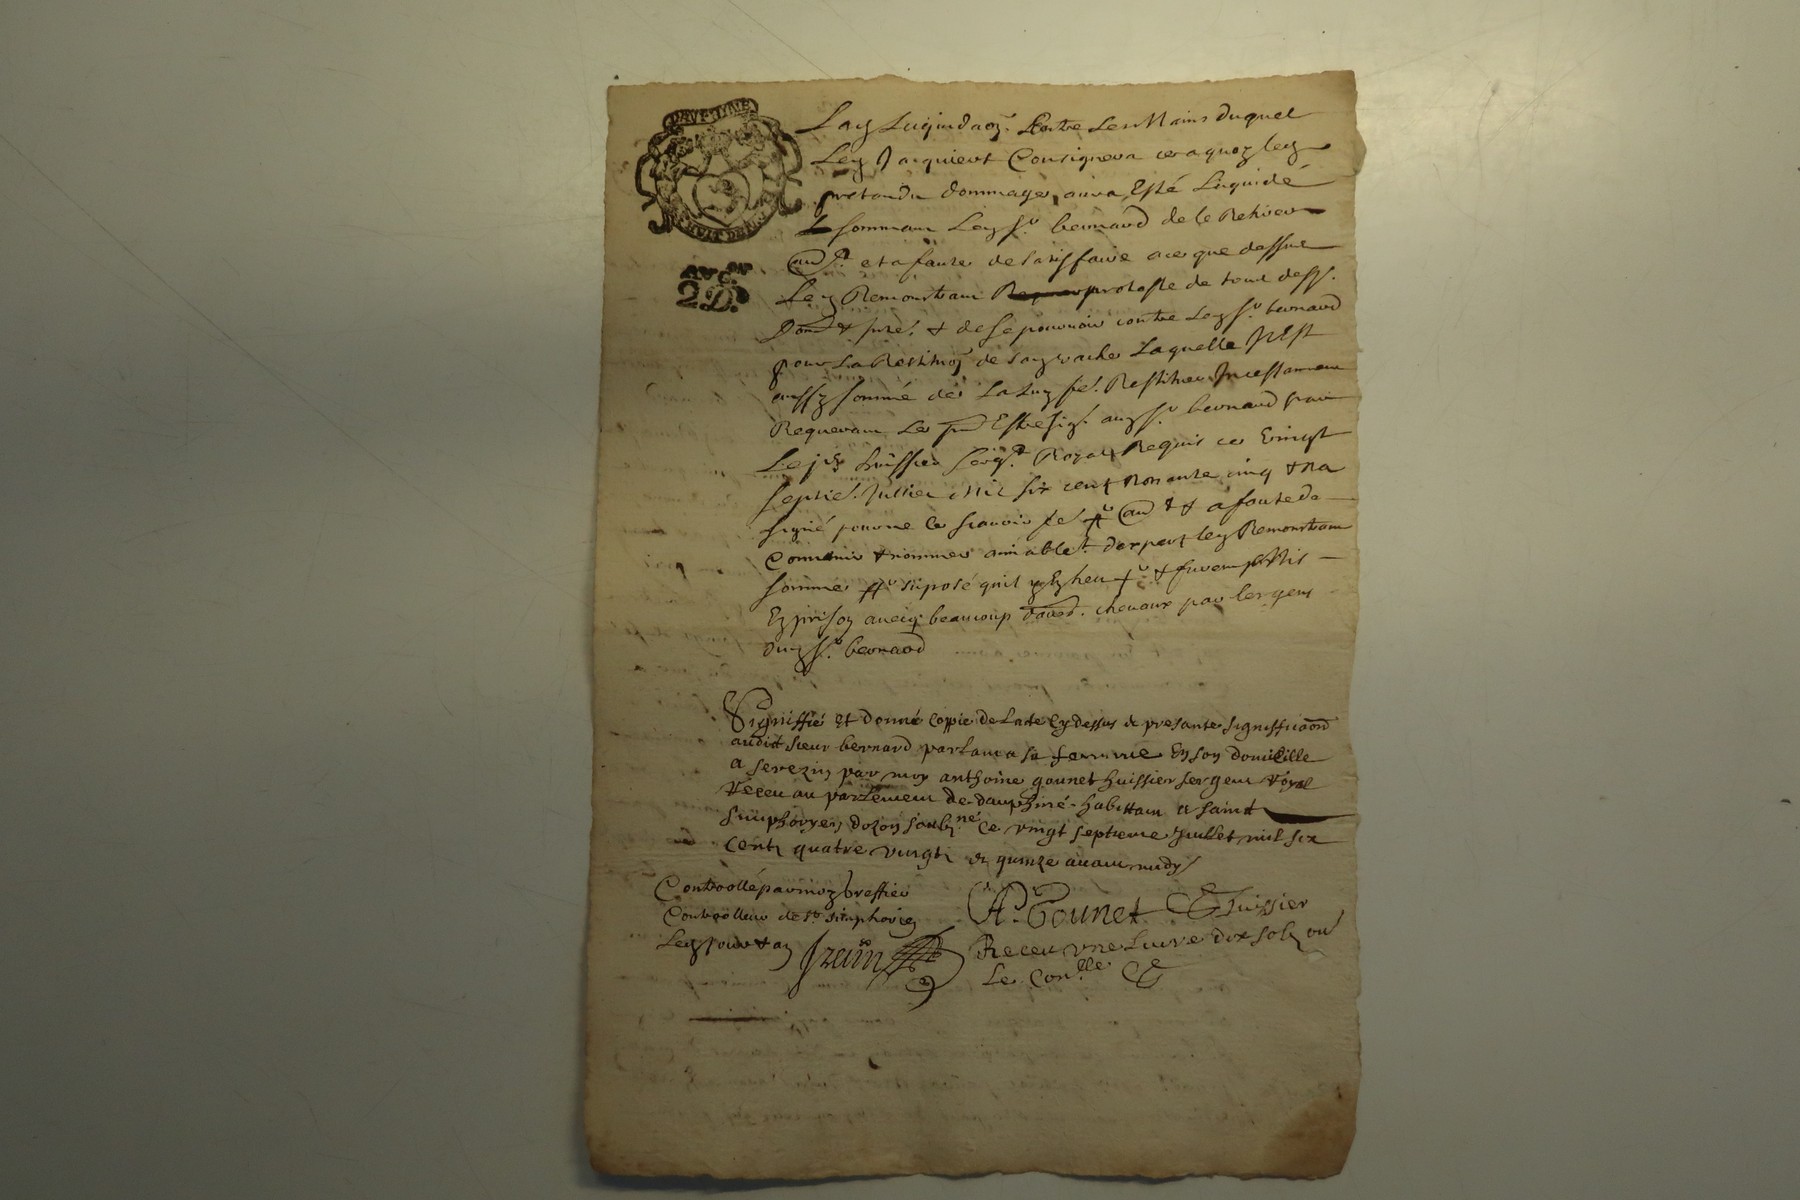 DAVPHINE
HVIT DEN
2 D.
Lad Liquidaon. Entre Les Mains duquel
Led Jacquiert Consignera ce a quoy led
pretandu dommage aura Esté Liquidé
Sommant Led Sr. bernard de le Retirer
et a faute de satisffaire a ce que dessus
Led Remonstrant protoste de tout
et de se pourvoir contre Led Sr. bernard
pour La Restituon de sad vache Laquelle Il Est
aussy sommé de La luy Restituer Incessamment
Requerant Le pnt Estre sig. aud Sr. bernard par
Le pr. huissier serg.t Royal Requis ce Vingt
septie. Juillet Mil six cent Nonante cinq & na
signé pour ne le scavoir fe.
Convenir & nommer amiablet. d'expert led Remonstrant
somme suposé quil y En heu & furent Mis
En prison avecq beaucoup chevaux par les gens
dud Sr. bernard
Signiffié et donné Coppie de Lacte Cy dessus & presante signifficaon
audit sieur bernard parlant a sa femme En son domicille
a serezin par moy anthoine gounet huissier sergent royal
receu au parlement de dauphiné habittant a saint
simphoryen dozon soubné. ce vingt septieme Juillet mil six
centz quatre vingtz & quinze avant midy
Controllé par moy Greffier
Controlleur de St. simphorien
Led jour & an
A. Gounet Huissier
Receu une Livre dix solz ou
Le Conlle